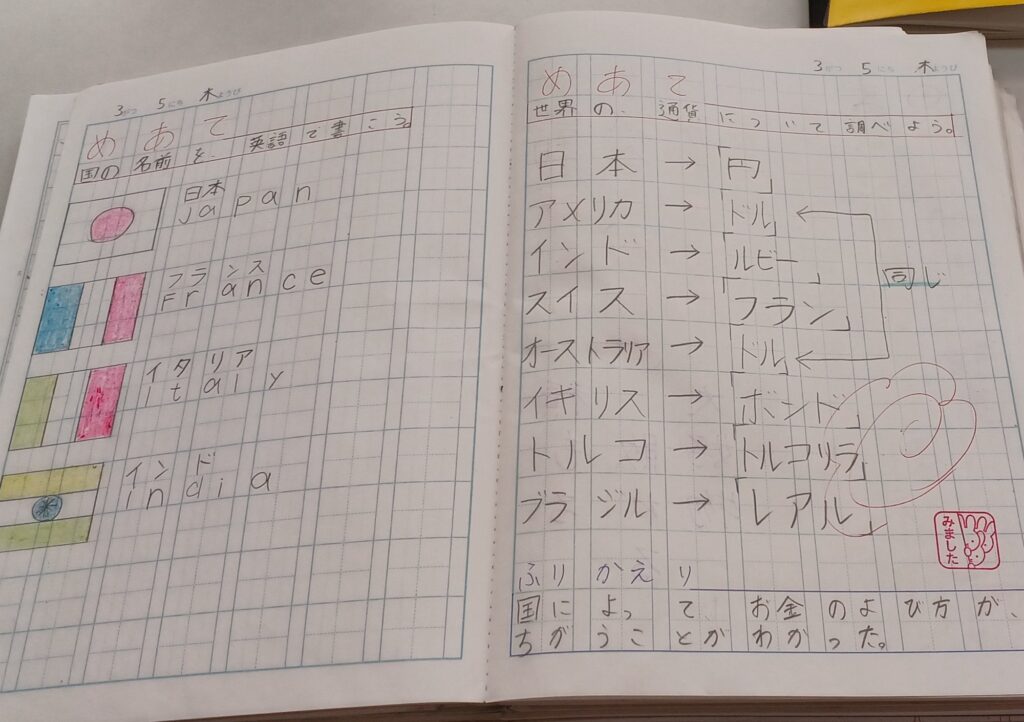 3がつ 5にち 木ようび
めあて
国の名前を、英語で書こう。
日本
Japan
フランス
France
イタリア
italy
インド
india
3がつ 5にち 木ようび
めあて
世界の、通貨について調べよう。
日本→「円」
アメリカ→「ドル」
インド→「ルビー」
同じ
スイス→「フラン」
オーストラリア→「ドル」
イギリス→「ボンド」
トルコ→「トルコリラ」
ブラジル→「レアル」
みました
ふりかえり
国によって、お金のよび方が、
ちがうことがわかった。